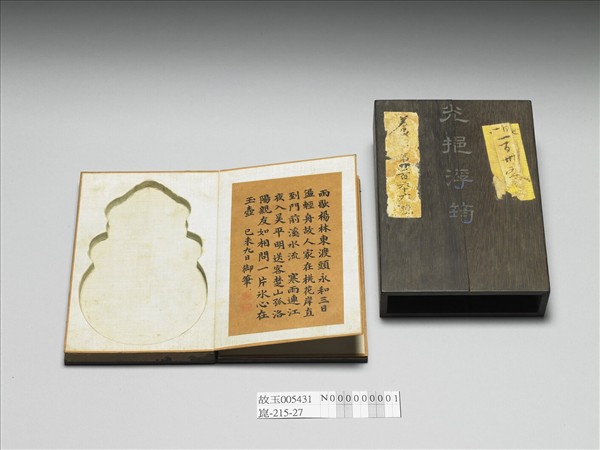 雨歇楊林東渡頭永和三日
盪輕舟故人家在桃花岸直
到門前溪水流 寒雨連江
夜入吳平明送客楚山孤洛
陽親友如相問一片冰心在
玉壺 己未九日御筆
光挹浮筠
故玉005431 N000000001
崑-215-27